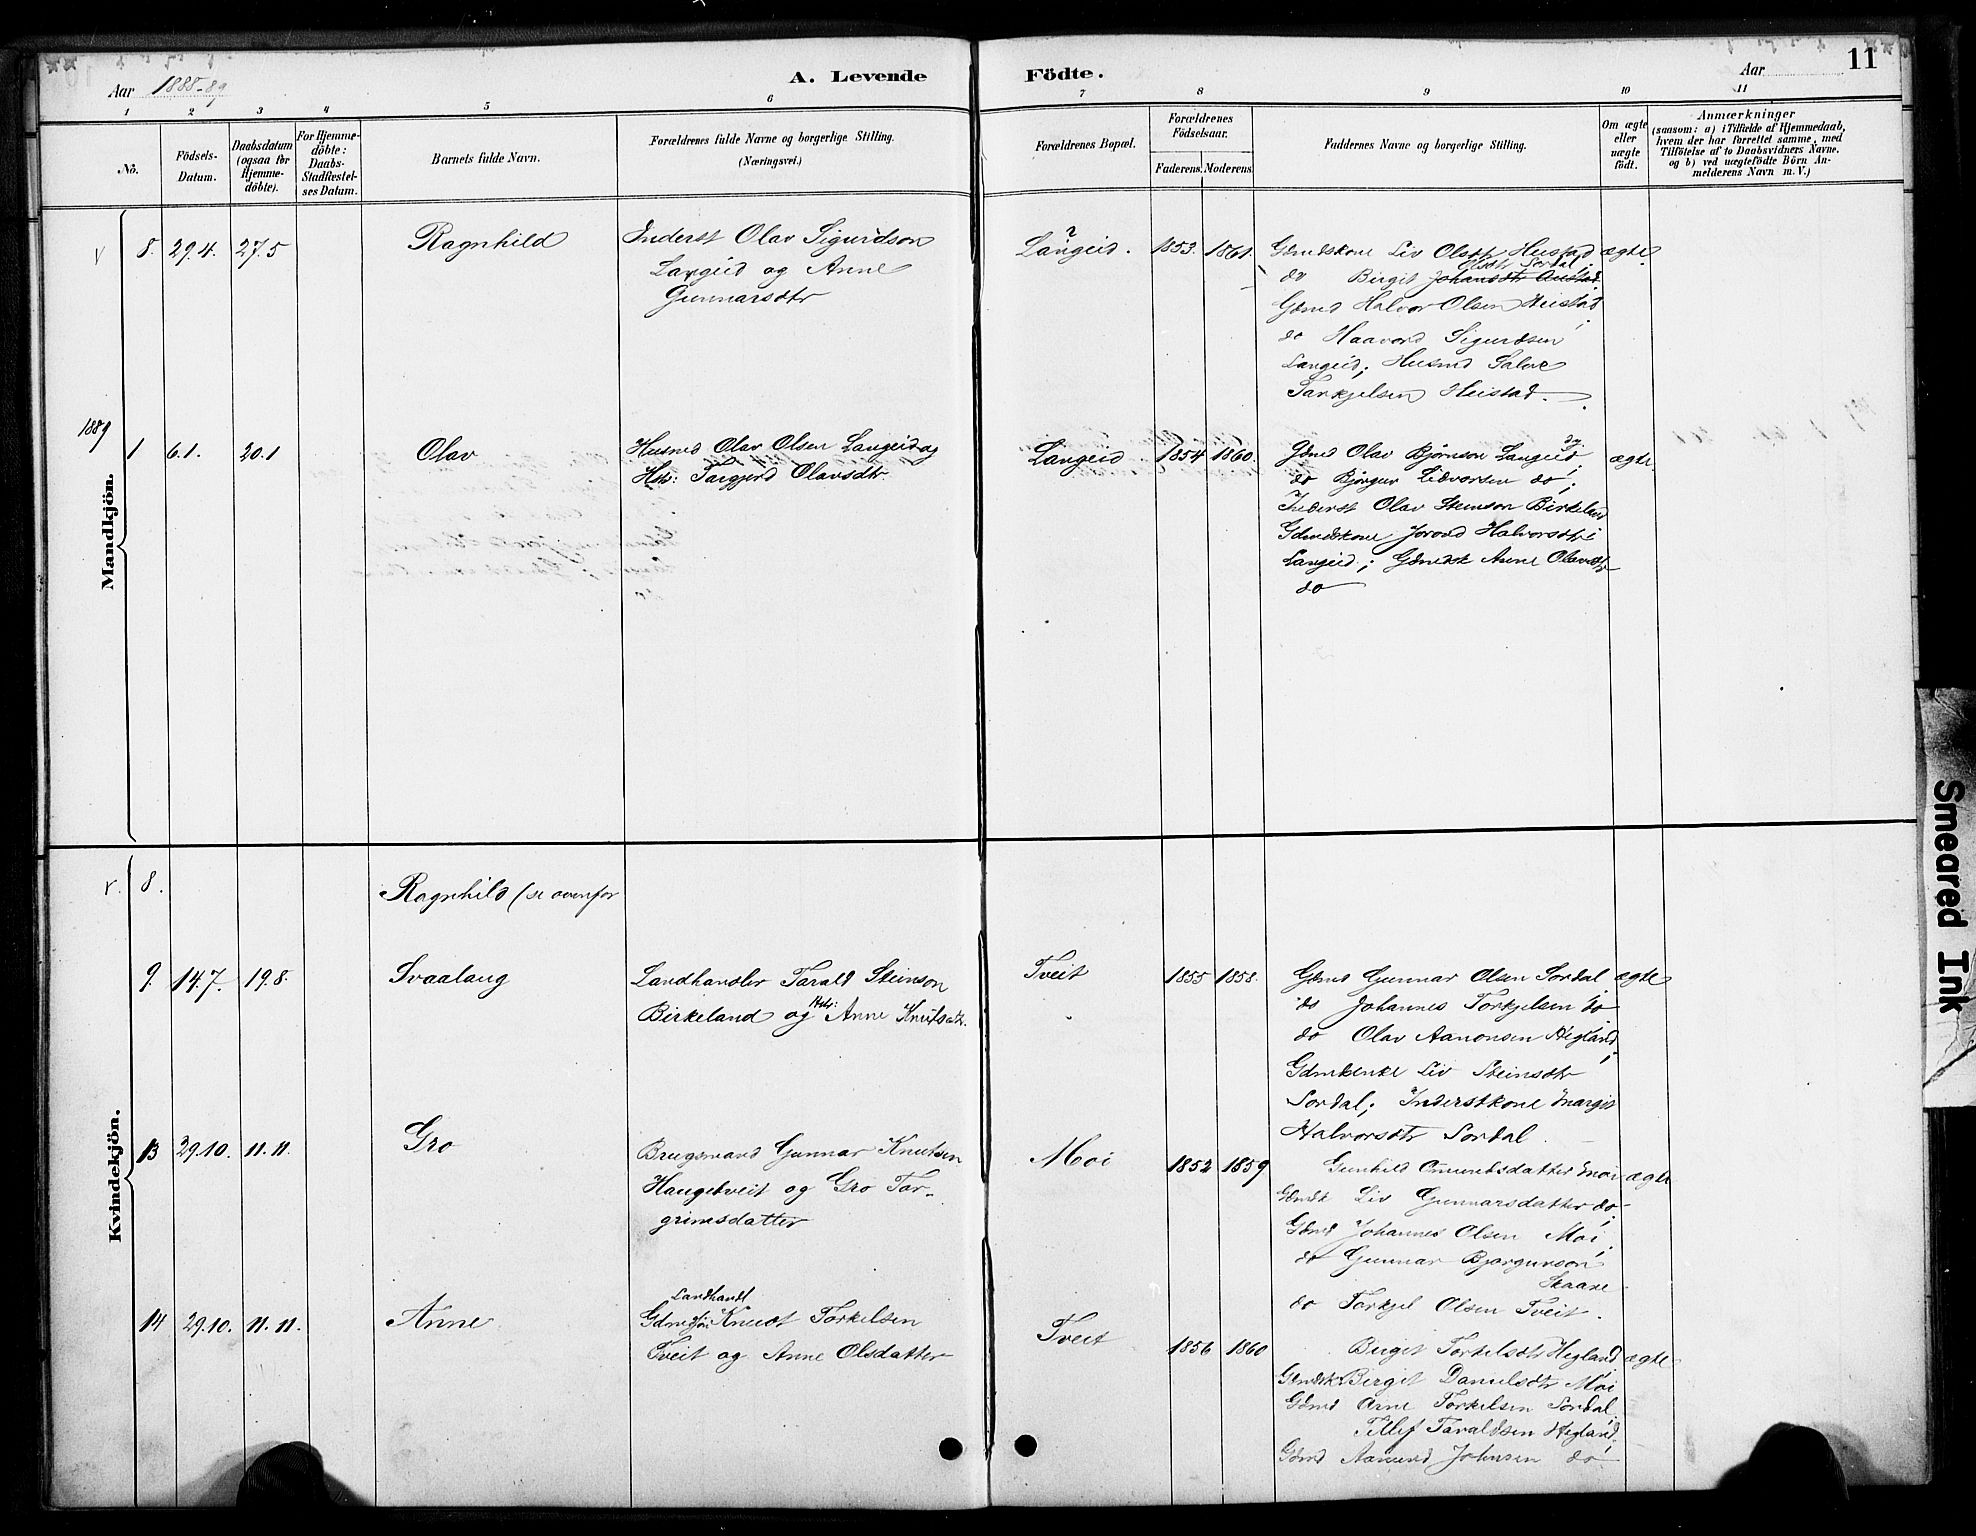 Aar 1888-89
A. Levende Födte.
Aar
11
1 2 3 4 5 6 7 8 9 10 11
No.
Födsels-Datum.
Daabsdatum (ogsaa for Hjemmedöbte).
For Hjemmedöbte: Daabs-Stadfæstelses Datum.
Barnets fulde Navn.
Forældrenes fulde Navne og borgerlige Stilling.
(Næringsvei.)
Forældrenes Bopæl.
Forældrenes Födselsaar.
Faderens. Moderens.
Faddernes Navne og borgerlige Stilling.
Om ægte eller uægte födt.
Anmærkninger
(saasom: a) i Tilfælde af Hjemmedaab,
hvem der har forrettet samme, med
Tilföielse af to Daabsvidners Navne,
og b) ved uægtefödte Börn Anmelderens Navn m. V.)
Mandkjön.
8. 29.4. 27.5 Ragnhild
Inderst Olav Sigurdson
Langeid og Anne
Gunnarsdtr
Langeid. 1853. 1861.
Gdmdskone Liv Olsdtr Heistad ægte
Olsdtr Sordal;
do Birgit Johansdtr Austad
Gdmd Halvor Olsen Heistad
do Haavord Sigurdsen
Langeid; Husmd Salve
Tarkjelsen Heistad.
1889
1 6.1. 20.1 Olav
Husmd Olav Olsen Langeid og
Hstr: Targjerd Olavsdtr.
Langeid 1854 1860.
Gdmd Olav Bjørnson Langeid; ægte
do Bjørgur Lidvorsen do;
Inderst Olav Steinson Birkeland
Gdmdskone Jorond Halvorsdtr
Langeid; Gdmdsk Anne Olavsdtr
do
Kvindekjön.
8.
Ragnhild (se ovenfor
9. 14.7. 19.8. Svaalaug
Landhandler Tarald Steinson
Birkeland og Hstr: Anne Knutsdtr.
Tveit 1855 1858.
Gdmd Gunnar Olsen Sordal ægte
do Johannes Torkjelsen do
do Olav Aanonsen Hegland;
Gdmdsenke Liv Steinsdtr
Sordal; Inderstkone Margit
Halvorsdtr Sordal.
13 29.10. 11.11. Gro
Brugsmand Gunnar Knutsen
Haugetveit og Gro Tor-
grimsdatter
Moi 1852 1859
Gunhild Omundsdatter Moi ægte
Gdmdsk Liv Gunnarsdatter do
Gdmd Johannes Olsen Moi;
do Gunnar Bjorgunson
Skaare
do Torkjel Olsen Tveit.
14 29.10. 11.11. Anne
Landhandl
Gdmd Knudt Torkelsen
Tveit og Anne Olsdatter
Tveit 1856 1860
Birgit Torkelsdtr Hegland ægte
Gdmdsk Birgit Danielsdtr Moi
Gdmd Arne Torkelsen Sordal
Tellef Taraldsen Hegland;
Gdmd Aamund Johnsen do
Smeared Ink